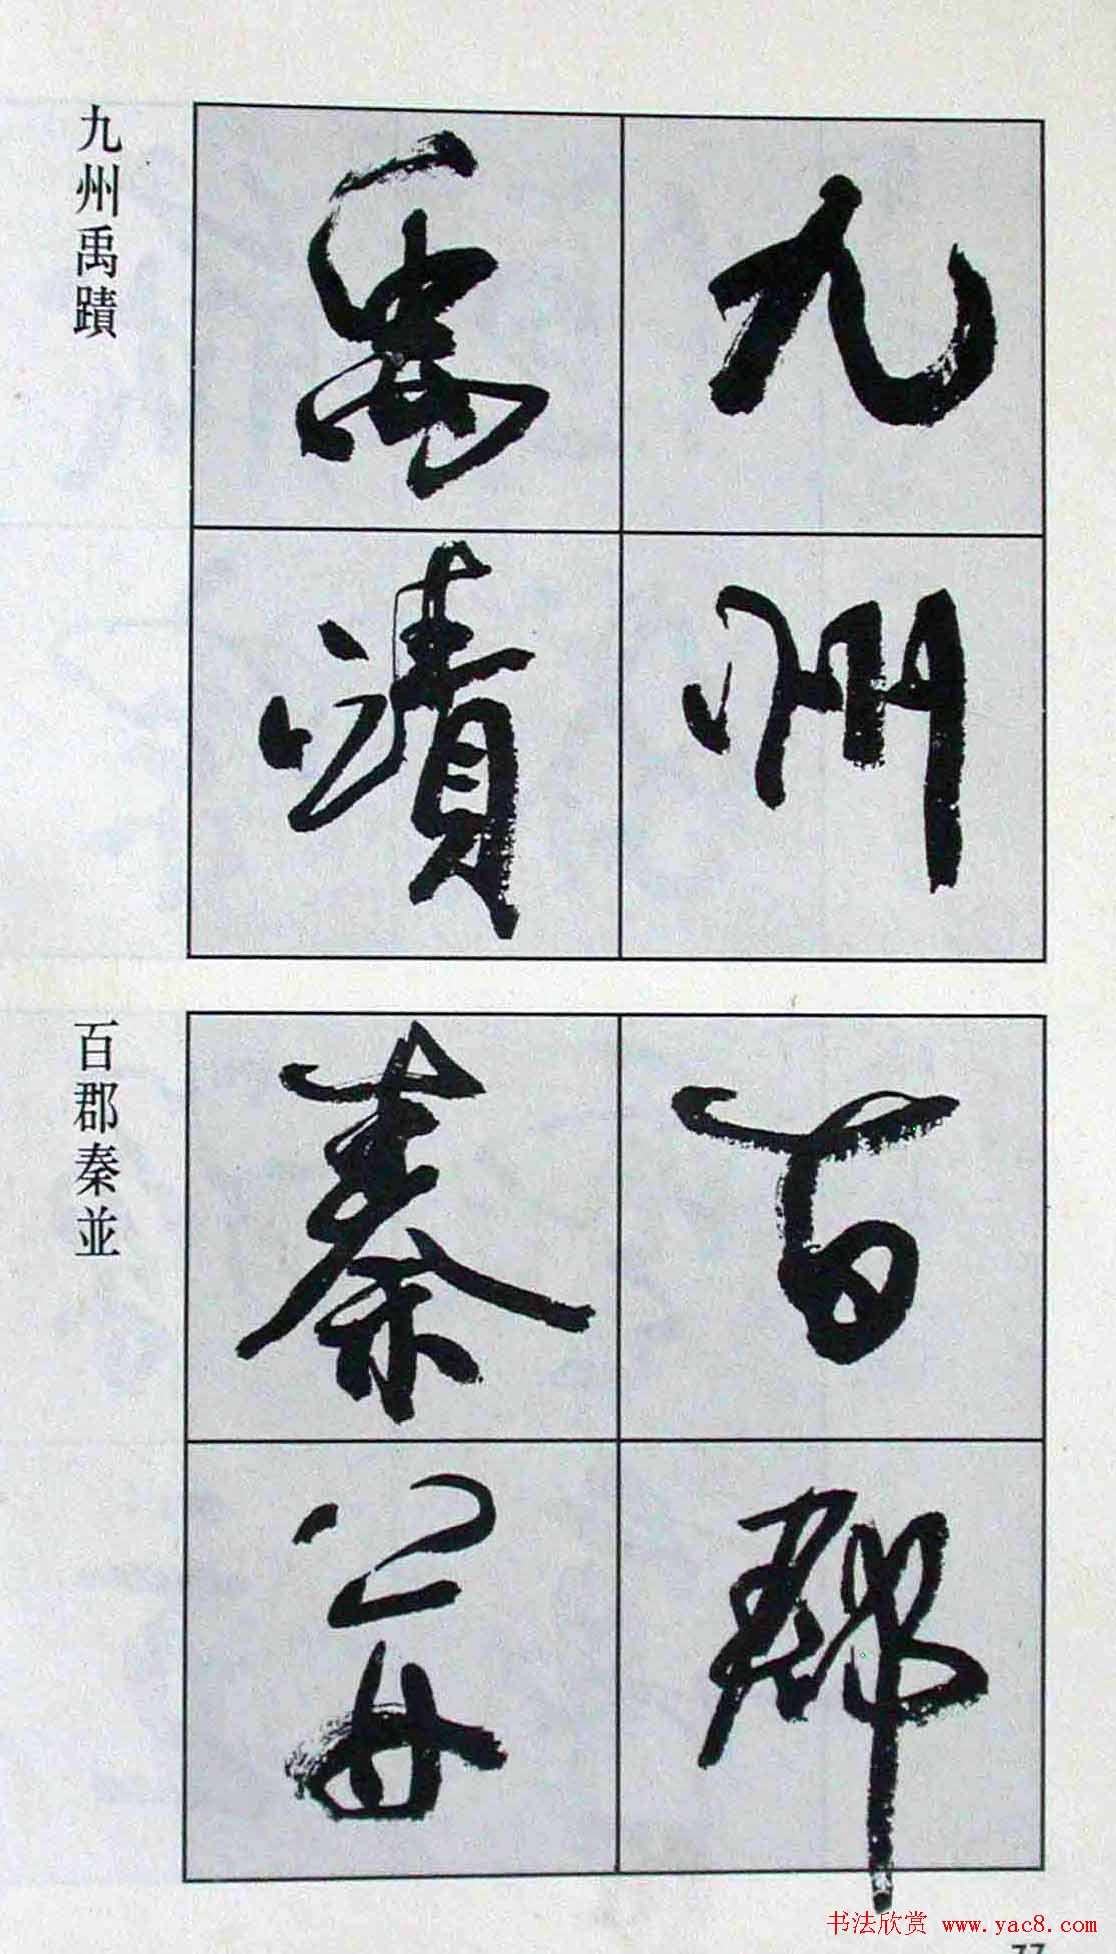 九州
禹蹟
九州禹蹟
百郡
秦並
百郡秦並
书法欣赏 www.yac8.com
77